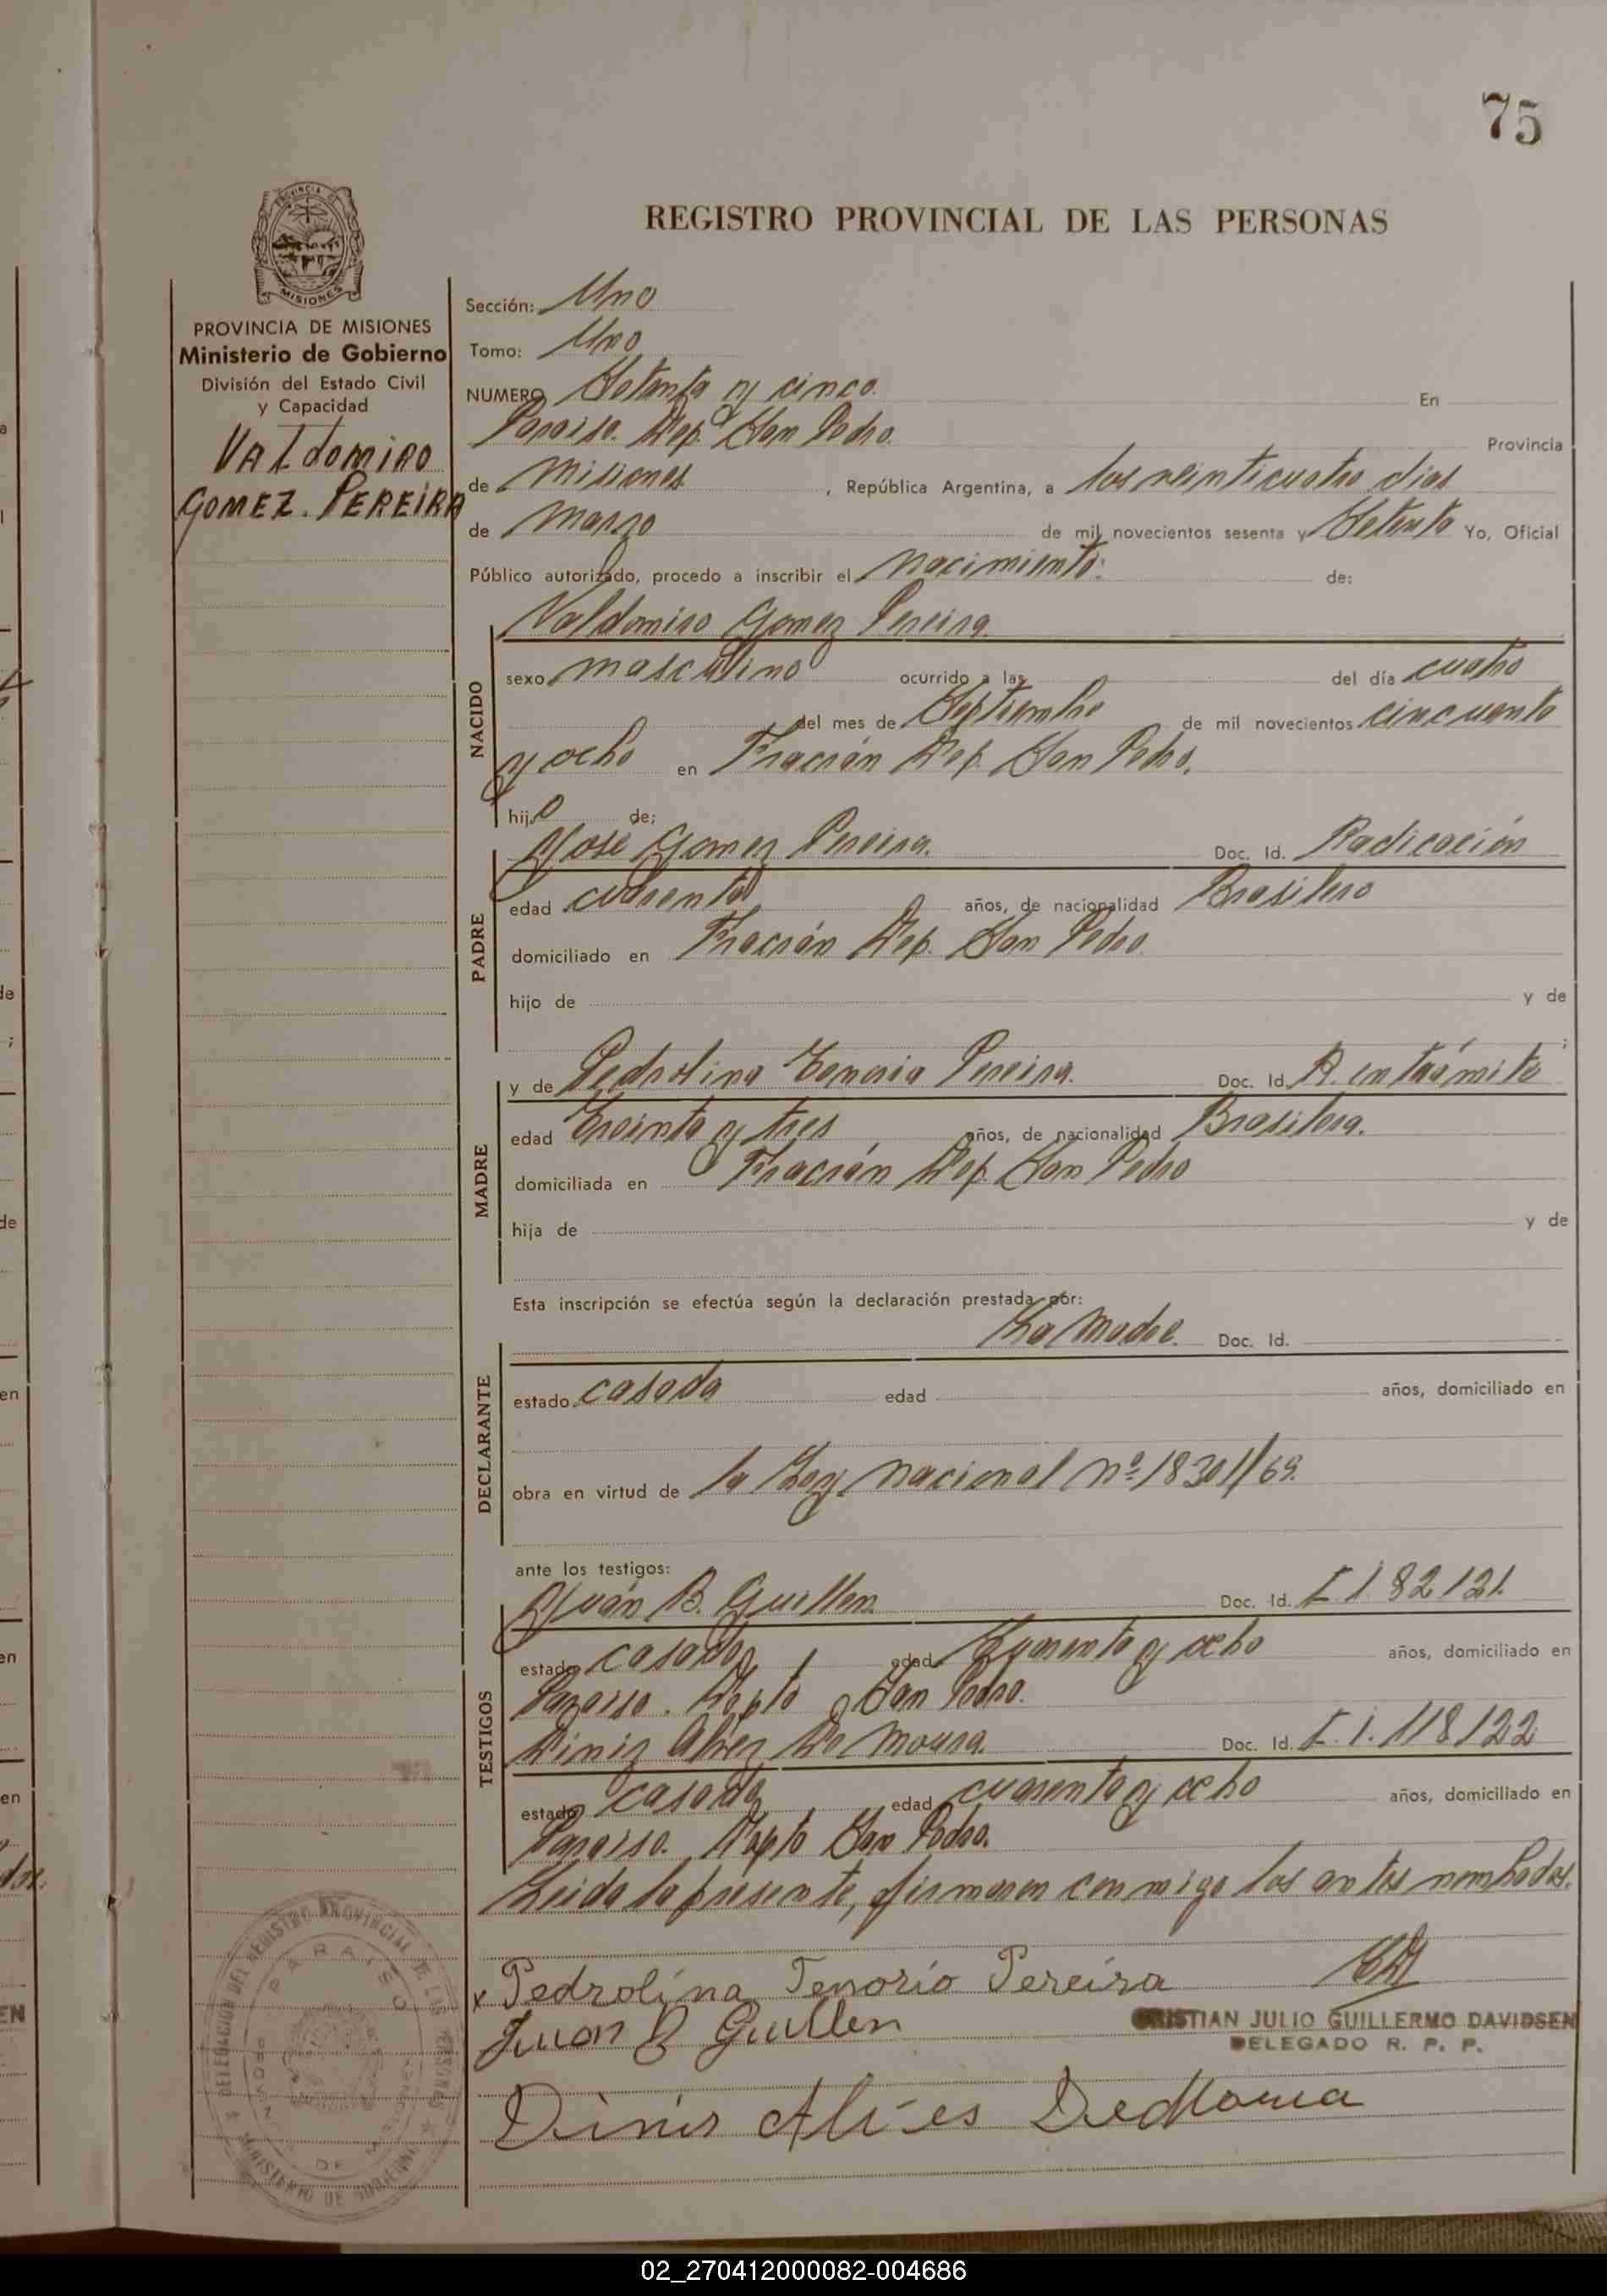 75
REGISTRO PROVINCIAL DE LAS PERSONAS
PROVINCIA DE MISIONES
Ministerio de Gobierno
División del Estado Civil
y Capacidad
Valdomiro
GOMEZ. PEREIRA
Sección: Uno
Tomo: Uno
NUMERO Setenta y cinco. En
Paraiso. Dep. San Pedro. Provincia
de Misiones, República Argentina, a los veinticuatro dias
de Marzo de mil novecientos sesenta y Setenta Yo, Oficial
Público autorizado, procedo a inscribir el nacimiento: de:
NACIDO
Valdomiro Gomez Pereira.
sexo masculino ocurrido a las del día cuatro
del mes de Septiembre de mil novecientos cincuenta
y ocho en Fracrán Dep. San Pedro.
hijo de;
PADRE
Jose Gomez Pereira. Doc. Id. Radicación
edad cuarenta años, de nacionalidad Brasilero
domiciliado en Fracrán Dep. San Pedro.
hijo de y de
;
MADRE
y de Pedrolina Tenorio Pereira. Doc. Id. R. en trámite
edad Treinta y tres años, de nacionalidad Brasilera.
domiciliada en Fracrán Dep. San Pedro
hija de y de
Esta inscripción se efectúa según la declaración prestada por:
DECLARANTE
La Madre. Doc. Id.
estado casada edad años, domiciliado en
obra en virtud de la Ley Nacional nº 18301/69.
ante los testigos:
TESTIGOS
Juán B. Guillen. Doc. Id. I. 1.82121.
estado casado edad Cuarenta y ocho años, domiciliado en
Paraiso. Depto San Pedro.
Diniz Alves De Moura. Doc. Id. I. i. 118122
estado casado edad cuarenta y ocho años, domiciliado en
Paraiso. Depto San Pedro.
Leida la presente, firmaron conmigo los antes nombrados.
x Pedrolina Tenorio Pereira
Juan B Guillen
CRISTIAN JULIO GUILLERMO DAVIDSEN
DELEGADO R. P. P.
Dinis Alves De Moura
DELEGACION DEL REGISTRO PROVINCIAL DE LAS PERSONAS
PARAISO
MINISTERIO DE GOBIERNO
02_270412000082-004686